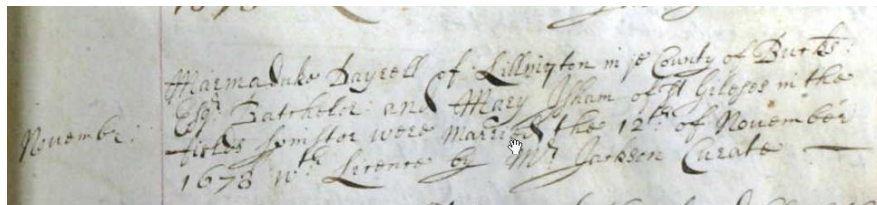 Marmaduke Dayrell of Lillington in ye County of Bucks:
Esqr. Batcheler and Mary Isham of St Gileses in the
November: fields Spinster were Married the 12th of November
1678 wth Licence by Mr Jackson Curate